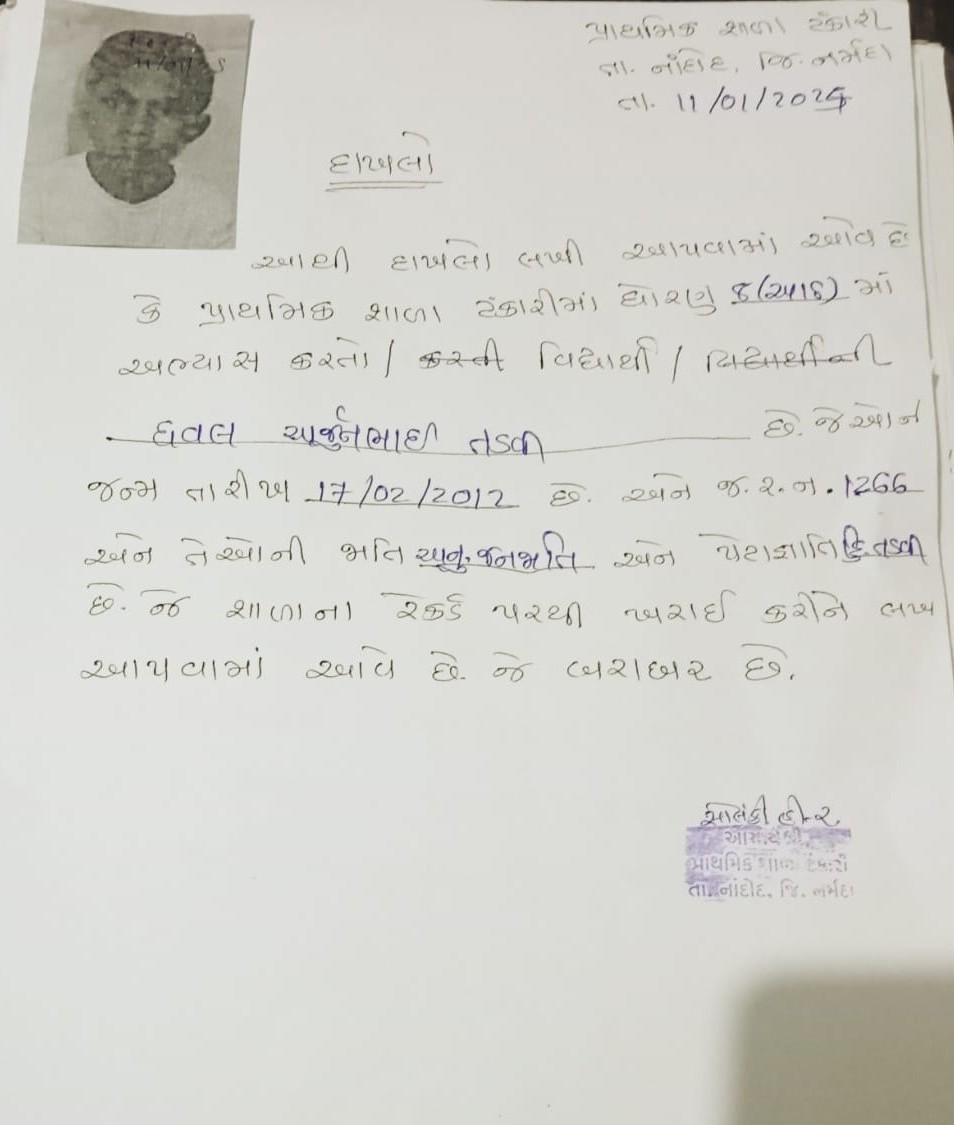 પ્રાથમિક શાળા ટંકારી
તા. નાંદોદ, જિ. નર્મદા
તા. 11/01/2025
દાખલો
આથી દાખલો લખી આપવામાં આવે છે
કે પ્રાથમિક શાળા ટંકારીમાં ધોરણ 8 (આઠ) માં
અભ્યાસ કરતો / કરતી વિદ્યાર્થી / વિદ્યાર્થીની
ધવલ અર્જુનભાઈ તડવી છે. જેઓની
જન્મ તારીખ 17/02/2012 છે. અને જ.ર.ન. 1266
અને તેઓની જાતિ અનુ. જનજાતિ અને પેટાજ્ઞાતિ હિ. તડવી
છે. જે શાળાના રેકર્ડ પરથી ખરાઈ કરીને લખ
આપવામાં આવે છે. જે બરાબર છે.
આચાર્ય શ્રી,
પ્રાથમિક શાળા ટંકારી
તા. નાંદોદ, જિ. નર્મદા